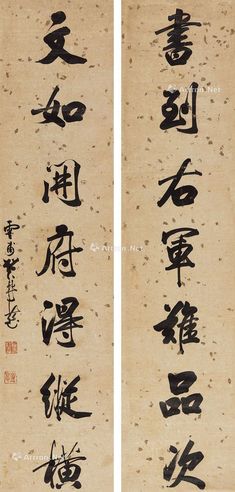 書到右軍難品次
文如開府得縱橫
Artron.Net
Artron.Net
Artron.Net
Artron.Net